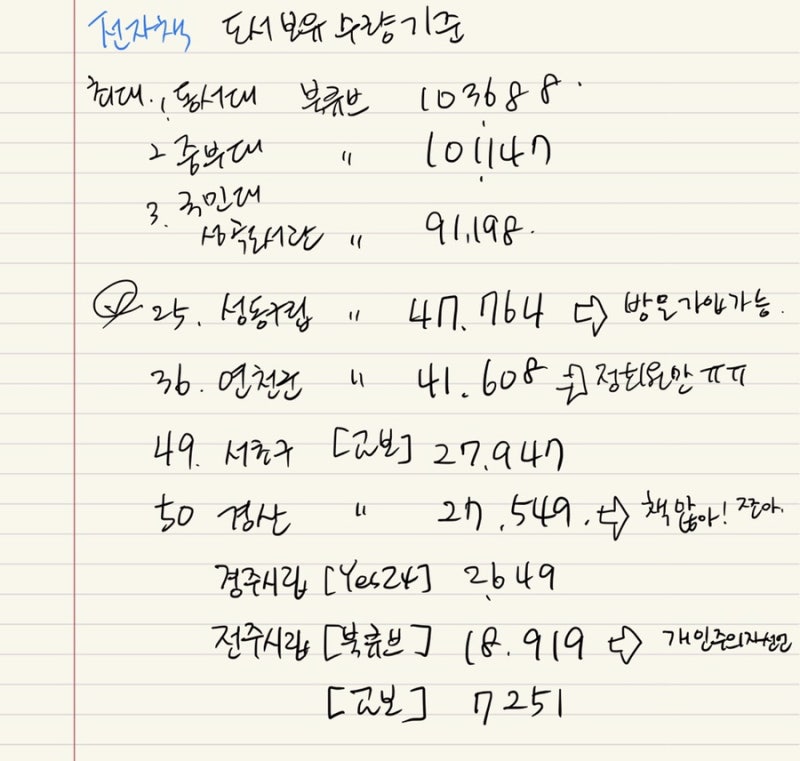 전자책 도서 보유 수량 기준
최대. 1. 동서대 북큐브 103688.
2 중부대 〃 101,147
3. 국민대
성곡도서관 〃 91,198.
25. 성동구립 〃 47.764 ⇨ 방문가입가능.
36. 연천군 〃 41.608 ⇨ 정회원만 ㅠㅠ
49. 서초구 [교보] 27.947
50 경산 〃 27.549. ⇨ 책 많아! 조아.
경주시립 [Yes24] 2,649
전주시립 [북큐브] 18.919 ⇨ 개인주의자선언
[교보] 7251